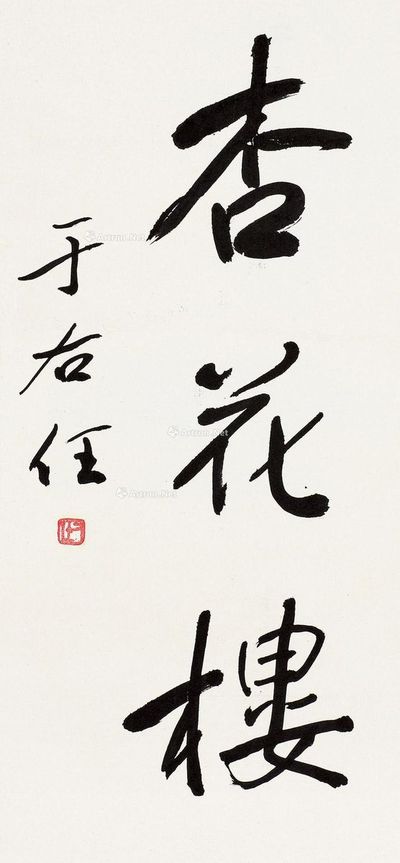 杏花樓
于右任
Artron.Net
Artron.Net
Artron.Net